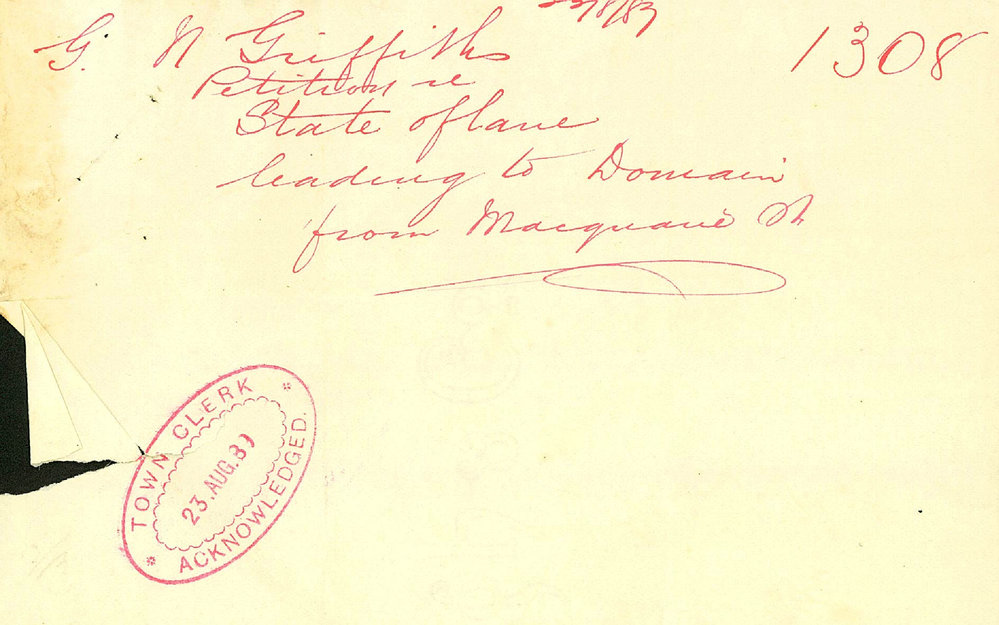 G. N Griffiths
1308
Petition re
State of lane
leading to Domain
from Macquarie St
TOWN CLERK
23. AUG. 8
ACKNOWLEDGED.